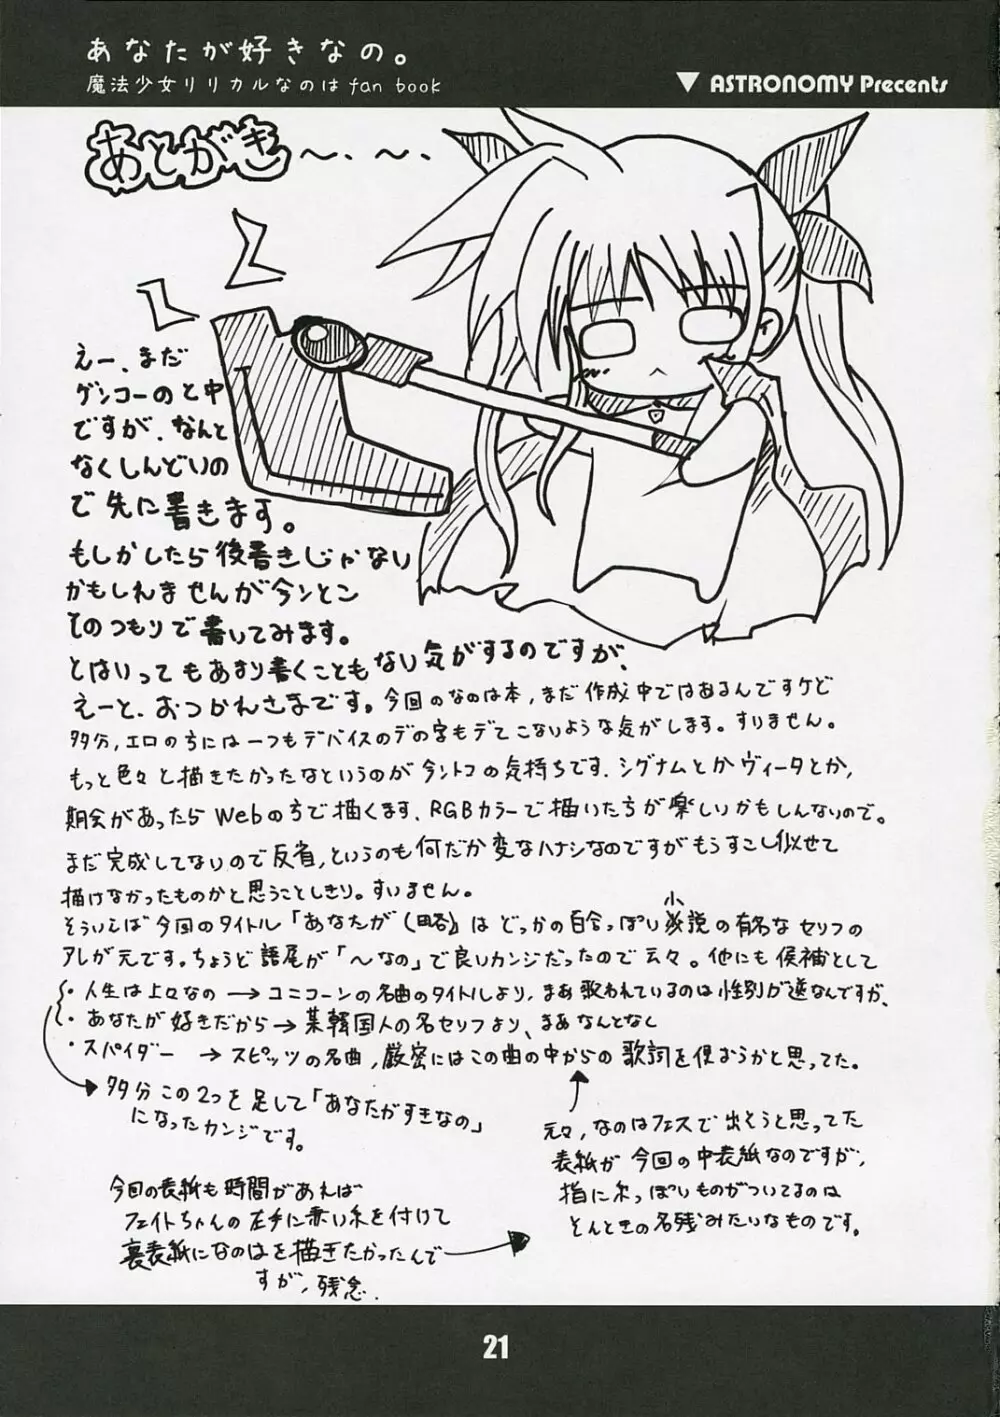 あなたが好きなの。
魔法少女リリカルなのは fan book
▼ ASTRONOMY Precents
あとがき～、～、
えー、まだ
ゲンコーのと中
ですが、なんと
なくしんどいの
で先に書きます。
もしかしたら後書きじゃない
かもしれませんが今ンとこ
そのつもりで書いてみます。
とはいってもあまり書くこともない気がするのですが、
えーと、おつかれさまです。今回のなのは本，まだ作成中ではあるんですケど
多分，エロの方には一つもデバイスのデの字もデてこないような気がします。すいません。
もっと色々と描きたかったなというのが今ントコの気持ちです．シグナムとかヴィータとか，
期会があったらWebの方で描くます．RGBカラーで描いた方が楽しいかもしんないので。
まだ完成してないので反省，というのも何だか変なハナシなのですがもうすこし似せて
描けなかったものかと思うことしきり。すいません。
そういえば今回のタイトル「あなたが（略）」はどっかの百合っぽい小説の有名なセリフの
アレが元です。ちょうど語尾が「～なの」で良いカンジだったので云々。他にも候補として
・人生は上々なの → ユニコーンの名曲のタイトルより，まあ歌われているのは性別が逆なんですが、
・あなたが好きだから → 某韓国人の名セリフより、まあなんとなく
・スパイダー → スピッツの名曲，厳密にはこの曲の中からの歌詞を使おうかと思ってた。
多分この2つを足して「あなたがすきなの」
になったカンジです。
元々，なのはフェスで出そうと思ってた
表紙が今回の中表紙なのですが，
指に糸っぽいものがついてるのは
そんときの名残みたいなものです。
今回の表紙も時間があれば
フェイトちゃんの左手に赤い糸を付けて
裏表紙になのはを描きたかったんで
すが，残念．
21